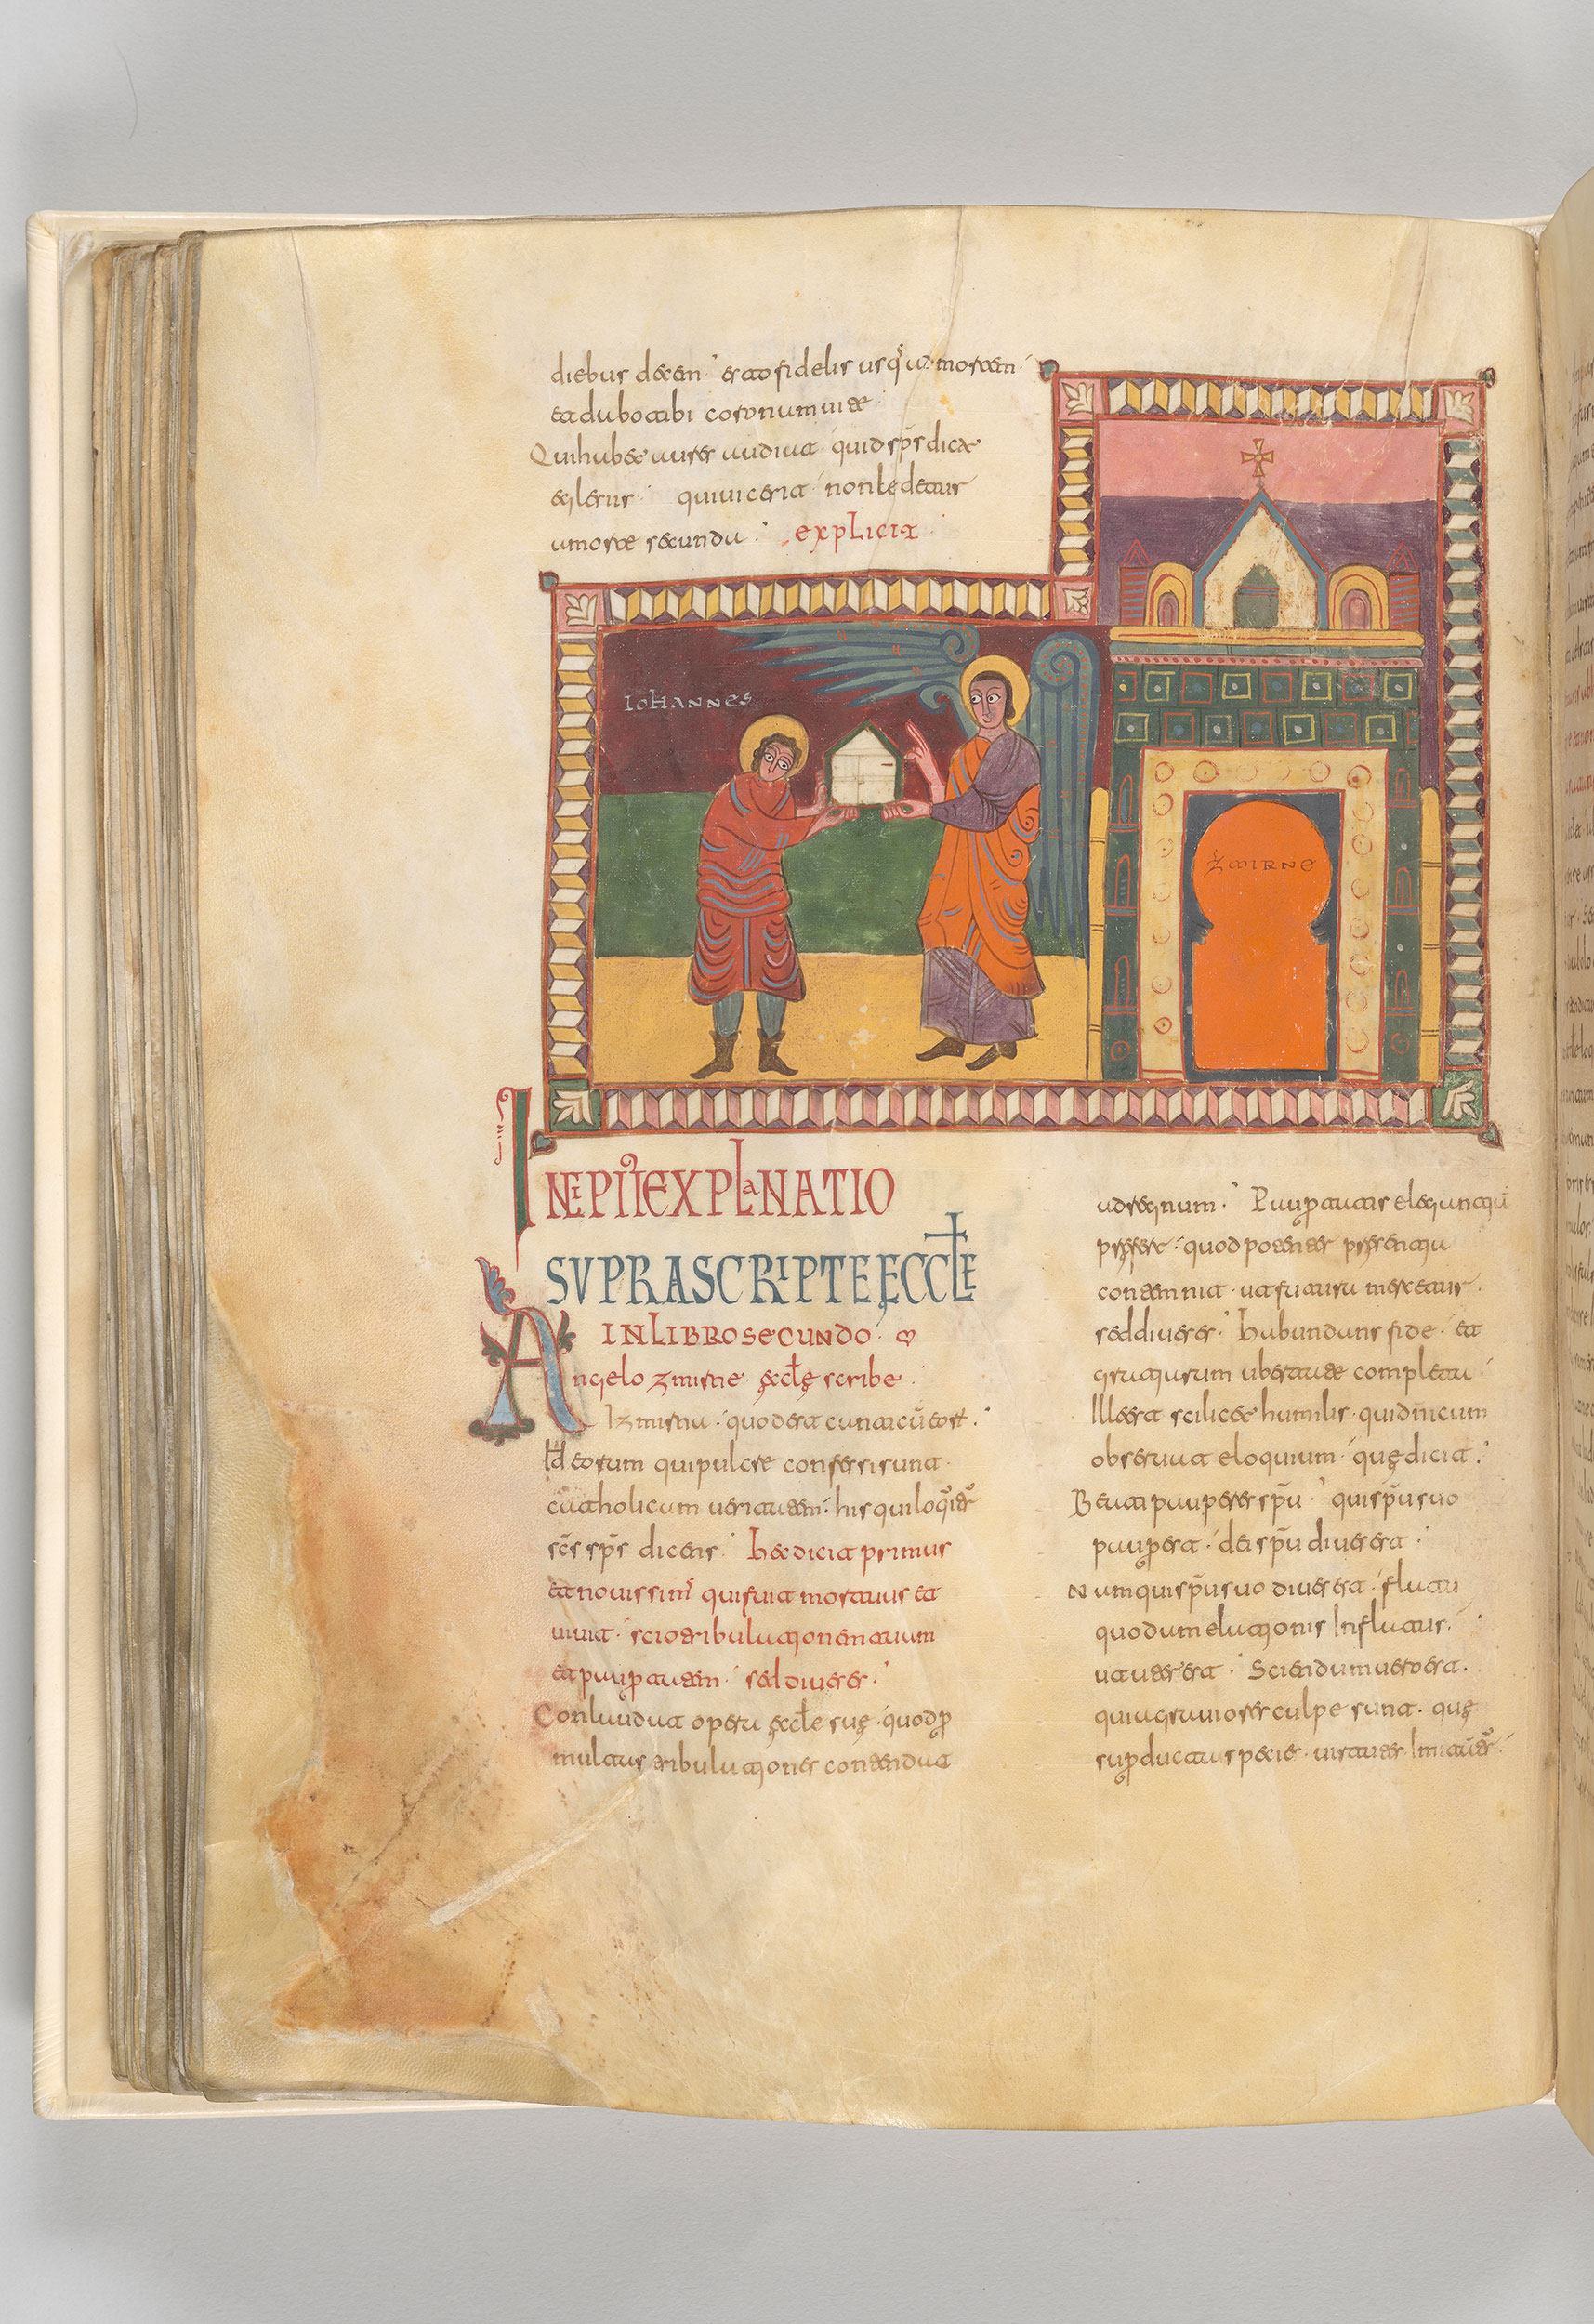 diebus decem · esto fidelis usq· ad mortem
et dabo tibi coronam vite
Qui habet aures audiat · quid sps dicat
eglesiis · qui vicerit · non ledetur
a morte secunda · explicit
IOHANNES
ZMIRNE
INCIPIT EXPLANATIO
SUPRASCRIPTE ECCLE
IN LIBRO SECUNDO ·
Angelo zmirne eccle scribe ·
Izmirna · quod est canticu eor ·
Heorum qui pulcre confessi sunt ·
catholicam veritatem · his
scs sps dicens · hec dicit primus
et novissim qui fuit mortuus et
vivit · scio tribulationem tuam
et paupertatem · sed dives es ·
Conlaudat opera eccle sue · quod p
multas tribulationes contendat
ad regnum · Paupertatis
prefert · quod potentes
contemnit · ut futura mercetur ·
sed dives es · habundans fide · et
gratiarum ubertate completa ·
Illa est scilicet humilis · qui dnicum
observat eloquium · que dicit ·
Beati pauperes spu · qui spu suo
pauper est · dei spu dives est ·
Nam qui spu suo dives est · flatu
quodam elationis Inflatus ·
Sciendum vero est ·
quia graviores culpe sunt · que
sup ducta specie · virtutes